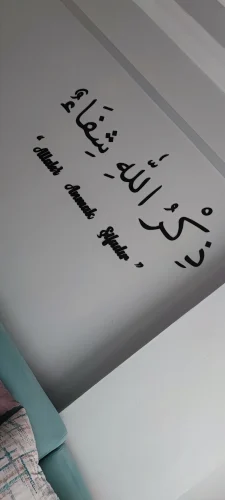 ذِكْرُ اللَّهِ شِفَاءٌ
"Allah'ı Anmak Şifadır"